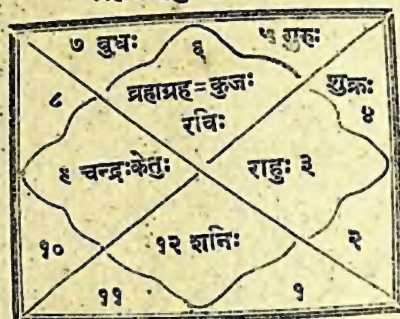 ७ बुधः ६ ५ गुरुः
८ ब्रह्मग्रह = कुजः शुक्रः
रविः ४
९ चन्द्रः केतुः राहुः ३
१० १२ शनिः २
११ १